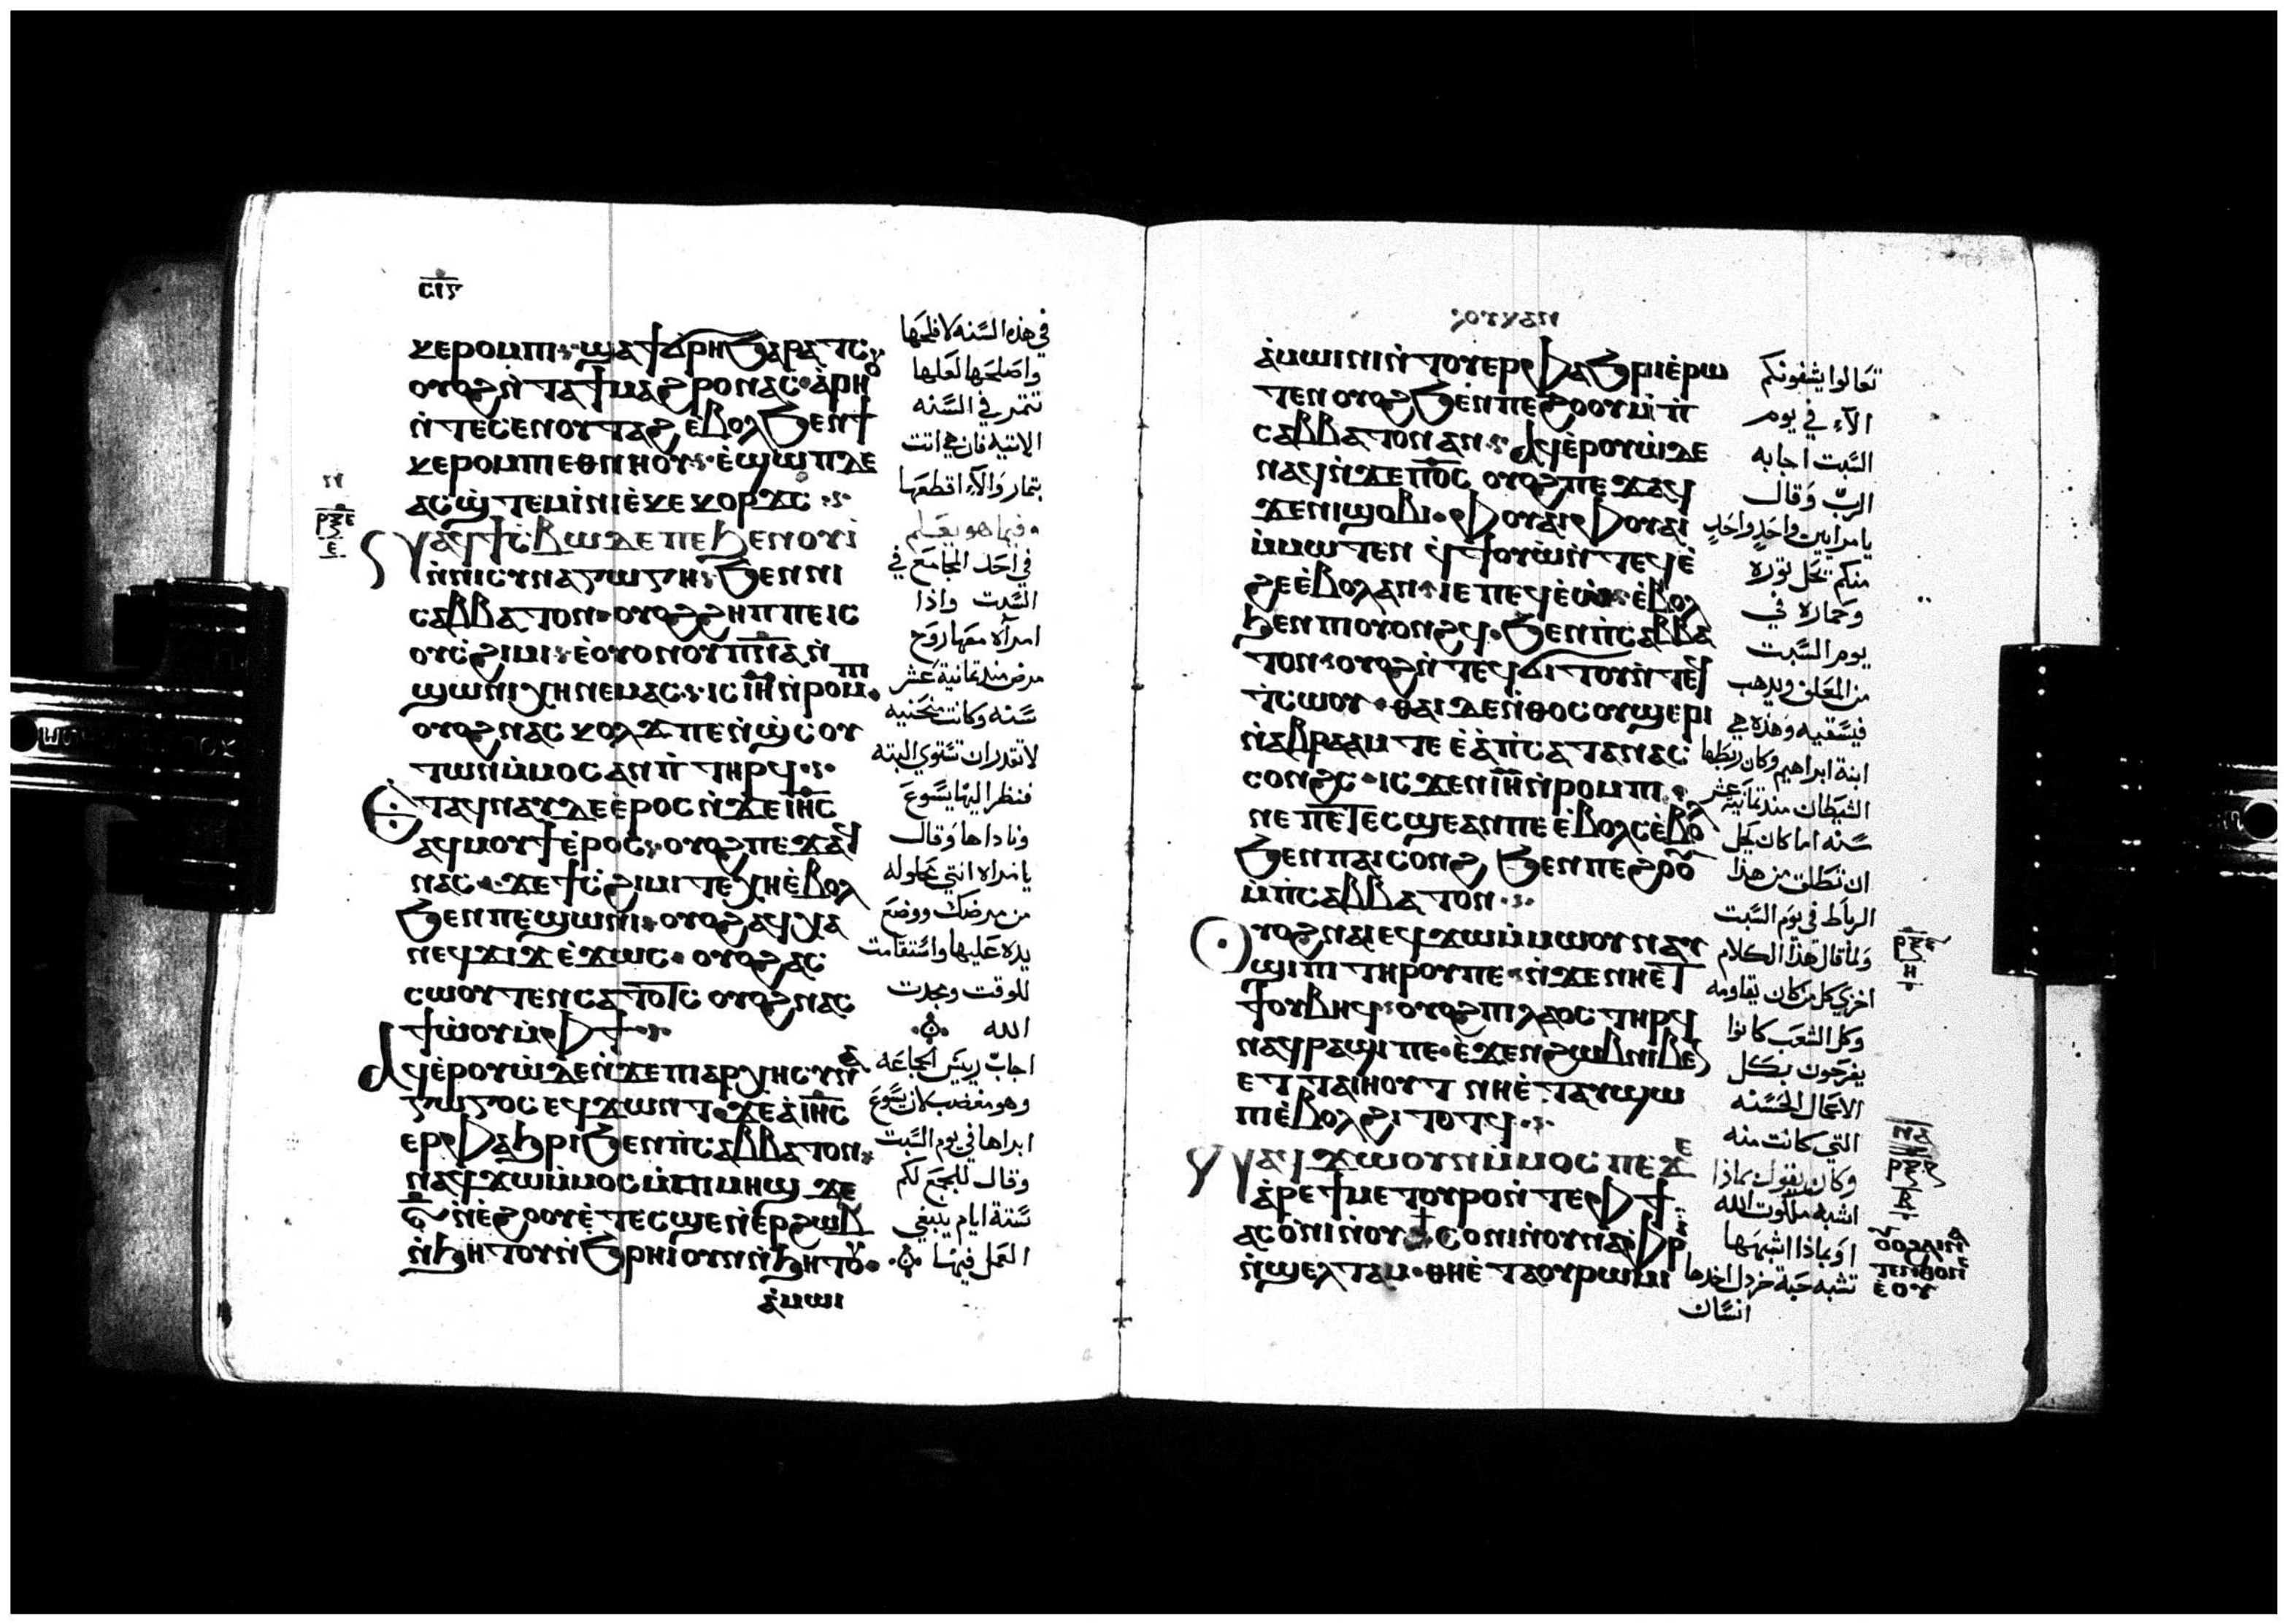 ⲥⲓⲋ
ⲕⲉⲣⲟⲙⲡⲓ ϣⲁϯϭⲣⲏ ϧⲁⲣⲁⲧⲥ
ⲟⲩⲟϩ ⲛ̀ⲧⲁϯⲙⲁϩⲣⲟ ⲛⲁⲥ ⲁⲣⲏⲟⲩ
ⲛ̀ⲧⲉⲥⲉⲛⲟⲩⲧⲁϩ ⲉ̀ⲃⲟⲗ ϧⲉⲛϯ
ⲕⲉⲣⲟⲙⲡⲓ ⲉⲑⲛⲏⲟⲩ ⲉ̀ϣⲱⲡ ⲇⲉ
ⲁⲥϣ̀ⲧⲉⲙⲓ̀ⲛⲓ ⲉ̀ⲕⲉⲕⲟⲣϫⲥ
ⲣⲝⲉ
ⲛⲁϥϯⲥ̀ⲃⲱ ⲇⲉ ⲡⲉ ϧⲉⲛ ⲟⲩⲓ̀
ⲛ̀ⲛⲓⲥⲩⲛⲁⲅⲱⲅⲏ ϧⲉⲛ ⲛⲓ
ⲥⲁⲃⲃⲁⲧⲟⲛ ⲟⲩⲟϩ ϩⲏⲡⲡⲉ ⲓⲥ
ⲟⲩⲥ̀ϩⲓⲙⲓ ⲉ̀ⲟⲩⲟⲛ ⲟⲩⲡ̅ⲛ̅ⲁ̅ ⲛ̀
ϣⲱⲛⲓ ⲭⲏ ⲛⲉⲙⲁⲥ ⲓⲥ ⲓⲏ ⲛ̀ⲣⲟⲙⲡⲓ
ⲟⲩⲟϩ ⲛⲁⲥⲕⲟⲗϫ ⲡⲉ ⲛ̀ϣ̀ⲥⲟⲩ
ⲧⲱⲛ ⲙ̀ⲙⲟⲥ ⲁⲛ ⲡ̀ⲧⲏⲣϥ
ⲉⲧⲁϥⲛⲁⲩ ⲇⲉ ⲉ̀ⲣⲟⲥ ⲛ̀ϫⲉ ⲓⲏⲥ
ⲁϥⲙⲟⲩϯ ⲉ̀ⲣⲟⲥ ⲟⲩⲟϩ ⲡⲉϫⲁϥ
ⲛⲁⲥ ϫⲉ ϯⲥ̀ϩⲓⲙⲓ ⲧⲉⲭⲏ ⲉ̀ⲃⲟⲗ
ϧⲉⲛ ⲡⲉϣⲱⲛⲓ ⲟⲩⲟϩ ⲁϥⲭⲁ
ⲛⲉϥϫⲓϫ ⲉ̀ϫⲱⲥ ⲟⲩⲟϩ ⲁⲥ
ⲥⲱⲟⲩⲧⲉⲛ ⲥⲁⲧⲟⲧⲥ ⲟⲩⲟϩ ⲛⲁⲥ
ϯⲱ̀ⲟⲩ ⲙ̀ⲫϯ
ⲁϥⲉ̀ⲣⲟⲩⲱ̀ ⲇⲉ ⲛ̀ϫⲉ ⲡⲓⲁⲣⲭⲏⲥⲩⲛⲁ
ⲅⲱⲅⲟⲥ ⲉϥϫⲱⲛⲧ ϫⲉ ⲁ̀ ⲓⲏⲥ
ⲉⲣⲫⲁϧⲣⲓ ϧⲉⲛ ⲡ̀ⲥⲁⲃⲃⲁⲧⲟⲛ
ⲛⲁϥϫⲱ ⲙ̀ⲙⲟⲥ ⲙ̀ⲡⲓⲙⲏϣ ϫⲉ
ⲋ̅ ⲛ̀ⲉ̀ϩⲟⲟⲩ ⲉ̀ⲧⲉⲥϣⲉ ⲛ̀ⲉⲣϩⲱⲃ
ⲛ̀ϧⲏⲧⲟⲩ ⲛ̀ϧⲣⲏⲓ ⲟⲩⲛ ⲛ̀ϧⲏⲧⲟⲩ
ⲁ̀ⲙⲱⲓ
في هذه السنه لافلحها
واصلحها لعلها
تثمر في السنه
الاتيه فان هي اتت
بثمار والا اقطعها
فيما هو يعلم
في احد المجامع في
السبت واذا
امرآه معها روح
مرض منذ ثمانية عشر
سنه وكانت منحنيه
لا تقدر ان تستوي البته
فنظر اليها يسوع
وناداها وقال
يا امراه انتي محلوله
من مرضك ووضع
يده عليها واستقامت
للوقت ومجدت
الله
اجاب رييس الجماعه
وهو مغضب لان يسوع
ابراها في يوم السبت
وقال للجمع لكم
ستة ايام ينبغي
العمل فيها
ⲁ̀ⲙⲱⲓⲛⲓ ⲛ̀ⲧⲟⲩⲉⲣⲫⲁϧⲣⲓ ⲉ̀ⲣⲱ
ⲧⲉⲛ ⲟⲩⲟϩ ϧⲉⲛ ⲡⲉϩⲟⲟⲩ ⲙ̀ⲡ̀
ⲥⲁⲃⲃⲁⲧⲟⲛ ⲁⲛ ⲁϥⲉ̀ⲣⲟⲩⲱ̀ ⲇⲉ
ⲛⲁϥ ⲛ̀ϫⲉ ⲡ⳪ ⲟⲩⲟϩ ⲡⲉϫⲁϥ
ϫⲉ ⲛⲓϣⲟⲃⲓ ⲫⲟⲩⲁⲓ ⲫⲟⲩⲁⲓ
ⲙ̀ⲙⲱⲧⲉⲛ ϥ̀ϯⲟⲩⲱ̀ ⲛ̀ⲧⲉϥⲉ̀
ϩⲉ ⲉ̀ⲃⲟⲗ ⲁⲛ ⲓⲉ ⲡⲉϥⲉ̀ⲱ ⲉ̀ⲃⲟⲗ
ϧⲉⲛ ⲡⲓⲟⲩⲟⲛϩϥ ϧⲉⲛ ⲡ̀ⲥⲁⲃⲃⲁ
ⲧⲟⲛ ⲟⲩⲟϩ ⲛ̀ⲧⲉϥϭⲓⲧⲟⲩ ⲛ̀ⲧⲉϥ
ⲧ̀ⲥⲱⲟⲩ ⲑⲁⲓ ⲇⲉ ⲛ̀ⲑⲟⲥ ⲟⲩϣⲉⲣⲓ
ⲛ̀ⲁⲃⲣⲁⲁⲙ ⲧⲉ ⲉ̀ⲁ̀ ⲡ̀ⲥⲁⲧⲁⲛⲁⲥ
ⲥⲟⲛϩⲥ ⲓⲥϫⲉⲛ ⲓⲏ ⲛ̀ⲣⲟⲙⲡⲓ
ⲛⲉ ⲡⲉⲧⲉⲥϣⲉ ⲁⲛ ⲡⲉ ⲉ̀ⲃⲟⲗⲥ ⲉ̀ⲃⲟⲗ
ϧⲉⲛ ⲡⲁⲓⲥⲟⲛϩ ϧⲉⲛ ⲡⲉϩⲟⲟⲩ
ⲙ̀ⲡ̀ⲥⲁⲃⲃⲁⲧⲟⲛ
ⲟⲩⲟϩ ⲛⲁⲓ ⲉϥϫⲱ ⲙ̀ⲙⲱⲟⲩ ⲛⲁⲩ
ϣⲓⲡⲓ ⲧⲏⲣⲟⲩ ⲡⲉ ⲛ̀ϫⲉ ⲛⲏⲉⲧ
ϯⲟⲩⲃⲏϥ ⲟⲩⲟϩ ⲡⲓⲗⲁⲟⲥ ⲧⲏⲣϥ
ⲛⲁϥⲣⲁϣⲓ ⲡⲉ ⲉ̀ϫⲉⲛ ϩⲱⲃ ⲛⲓⲃⲉⲛ
ⲉⲧⲧⲁⲓⲏⲟⲩⲧ ⲛⲏⲉ̀ⲧⲁⲩϣⲱ
ⲡⲓ ⲉ̀ⲃⲟⲗ ϩⲓⲧⲟⲧϥ
ⲛⲁϥϫⲱ ⲟⲩⲛ ⲙ̀ⲙⲟⲥ ⲡⲉ ϫⲉ
ⲁ̀ⲣⲉ ϯⲙⲉⲧⲟⲩⲣⲟ ⲛ̀ⲧⲉ ⲫϯ
ⲁⲥⲟ̀ⲛⲓ ⲛ̀ⲟⲩ ⲥⲟ̀ⲛⲓ ⲛ̀ⲟⲩⲛⲁⲫⲣⲓ
ⲛ̀ϣⲉⲗⲧⲁⲙ ⲑⲏⲉ̀ⲧⲁ ⲟⲩⲣⲱⲙⲓ
تعالوا يشفونكم
الآء في يوم
السبت اجابه
الرب وقال
يا مرايين واحد واحد
منكم يحل ثوره
وحماره في
يوم السبت
من المعلف ويدهب
فيسقيه وهذه هي
ابنة ابراهيم وكان ربطها
الشيطان منذ ثمانية عشر
سنه اما كان يحل
ان تطلق من هذا
الرباط في يوم السبت
ولما قال هذا الكلام
اخزي كل من كان يقاومه
وكل الشعب كانوا
يفرحون بكل
الاعمال الحسنه
التي كانت منه
وكان يقول بماذا
اشبه ملكوت الله
او بماذا اشبهها
تشبه حبة خردل اخدها
انسان